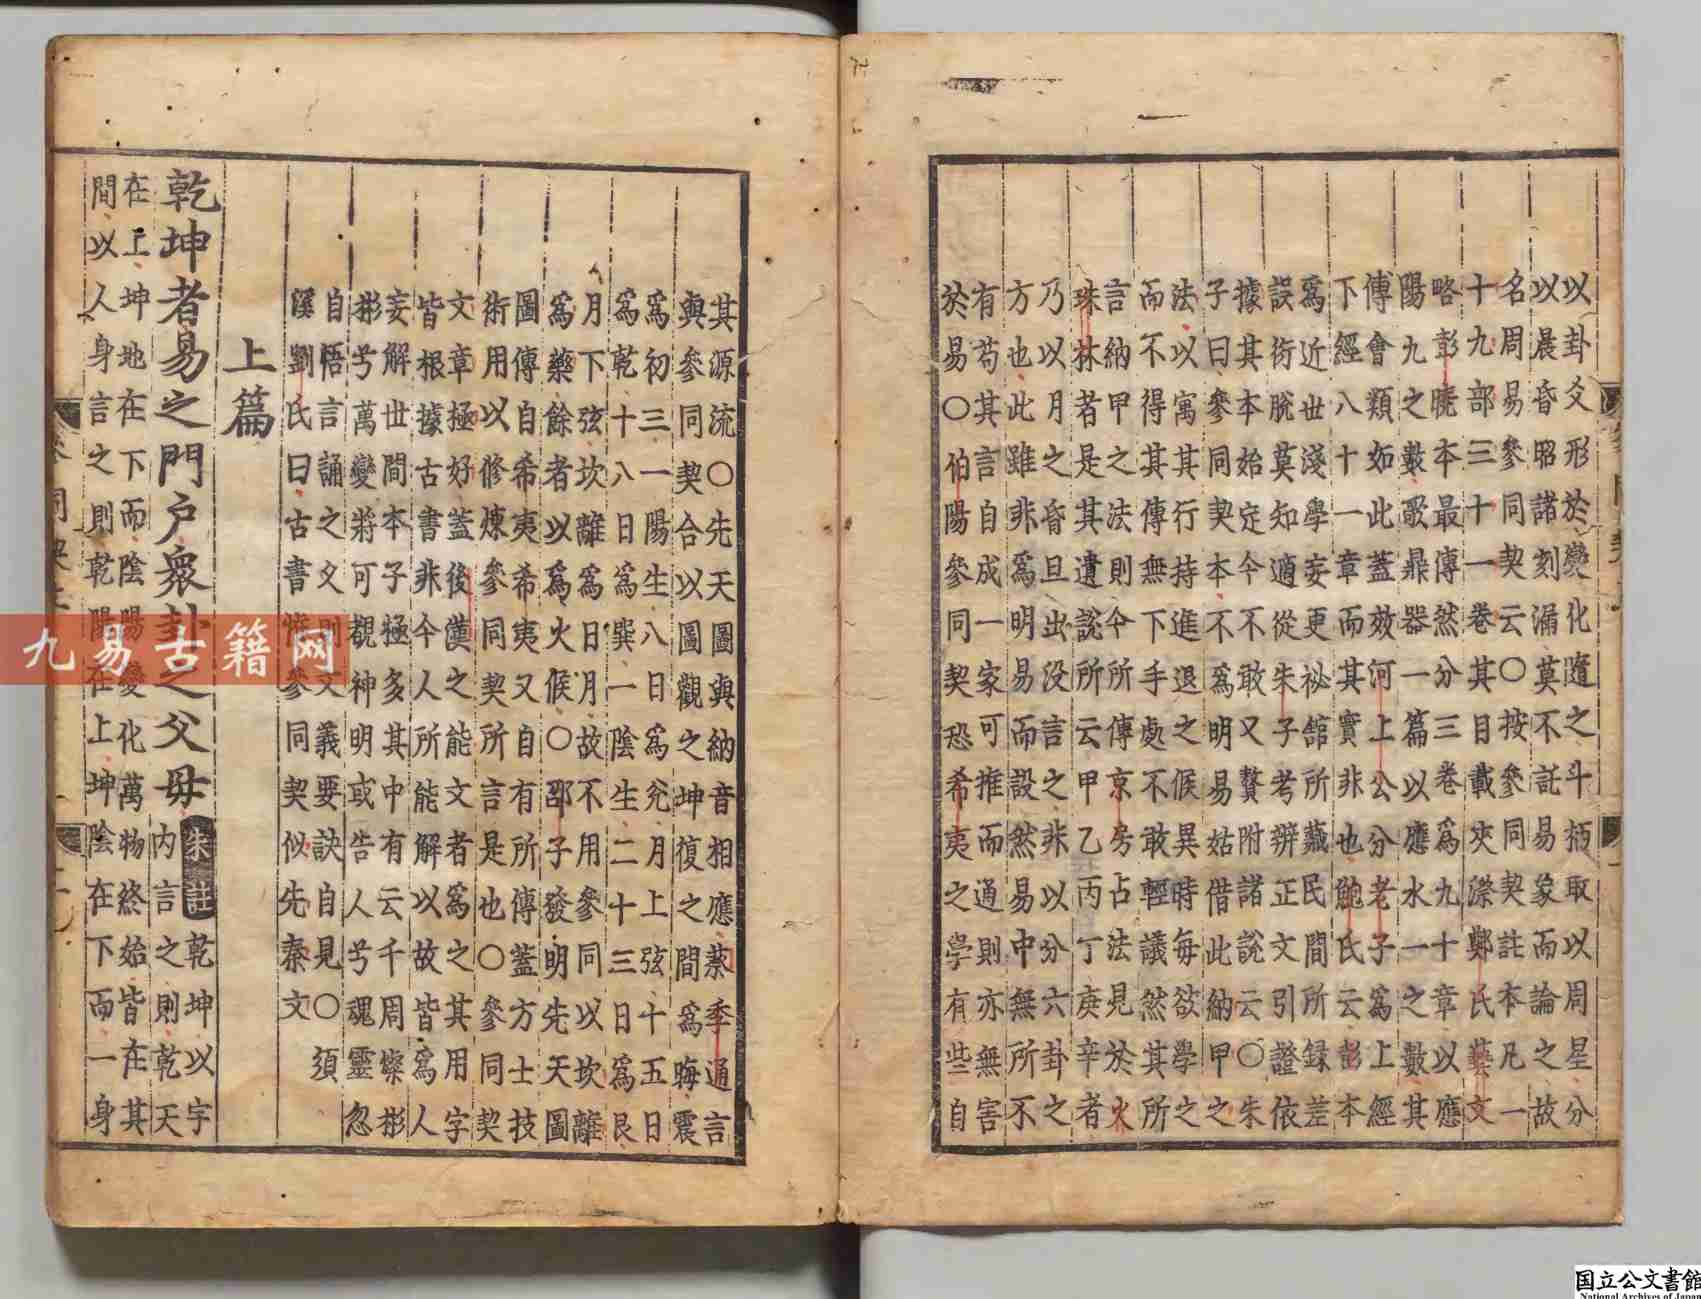 以卦爻形於變化隨之斗柄取以周星分
以晨昏昭諸刻漏莫不託易象而論之故
名周易參同契云〇按參同契註本凡一
十九部三十一卷其目載夾漈鄭氏藝文
略彭曉本最傳然分三卷爲九十章以應
陽九之數歌鼎器一篇以應水一之數其
傅會類如此蓋效河上公分老子爲上經
下經八十一章而其實非也鮑氏云彭本
爲近世淺學妄更祕館所藏民間所録差
誤衍脫莫知適從朱子考辨正文引證依
據其本始定今不敢又贅附諸説云〇朱
子曰參同契本不爲明易姑借此納甲之
法以寓其行持進退之候異時每欲學之
而不得其傳無下手處不敢輕議然其所
言納甲之法則今所傳京房占法見於火
珠林者是其遺説所云甲乙丙丁庚辛者
乃以月之昏旦出没言之非以分六卦之
方也此雖非爲明易而設然易中無所不
有苟其言自成一家可推而通則亦無害
於易〇伯陽參同契恐希夷之學有些自
其源流〇先天圖與納音相應蔡季通言
與參同契合以圖觀之坤復之間爲晦震
爲初三一陽生八日爲兊月上弦十五日
爲乾十八日爲巽一陰生二十三日爲艮
月下弦坎離爲日月故不用參同以坎離
爲藥餘者以爲火候〇邵子發明先天圖
圖傳自希夷希夷又自有所傳蓋方士技
術用以修煉參同契所言是也〇參同契
文章極好蓋後漢之能文者爲之其用字
皆根據古書非今人所能解以故皆爲人
妄解世間本子極多其中有云千周燦彬
彬兮萬變將可覩神明或告人兮魂靈忽
自悟言誦之乆則文義要訣自見〇須
溪劉氏曰古書惟參同契似先秦文
上篇
乾坤者易之門戶衆卦之父母
朱註
乾坤以宇
内言之則乾天
在上坤地在下而陰陽變化萬物終始皆在其
間以人身言之則乾陽在上坤陰在下而一身
九易古籍网
国立公文書館
National Archives of Japan